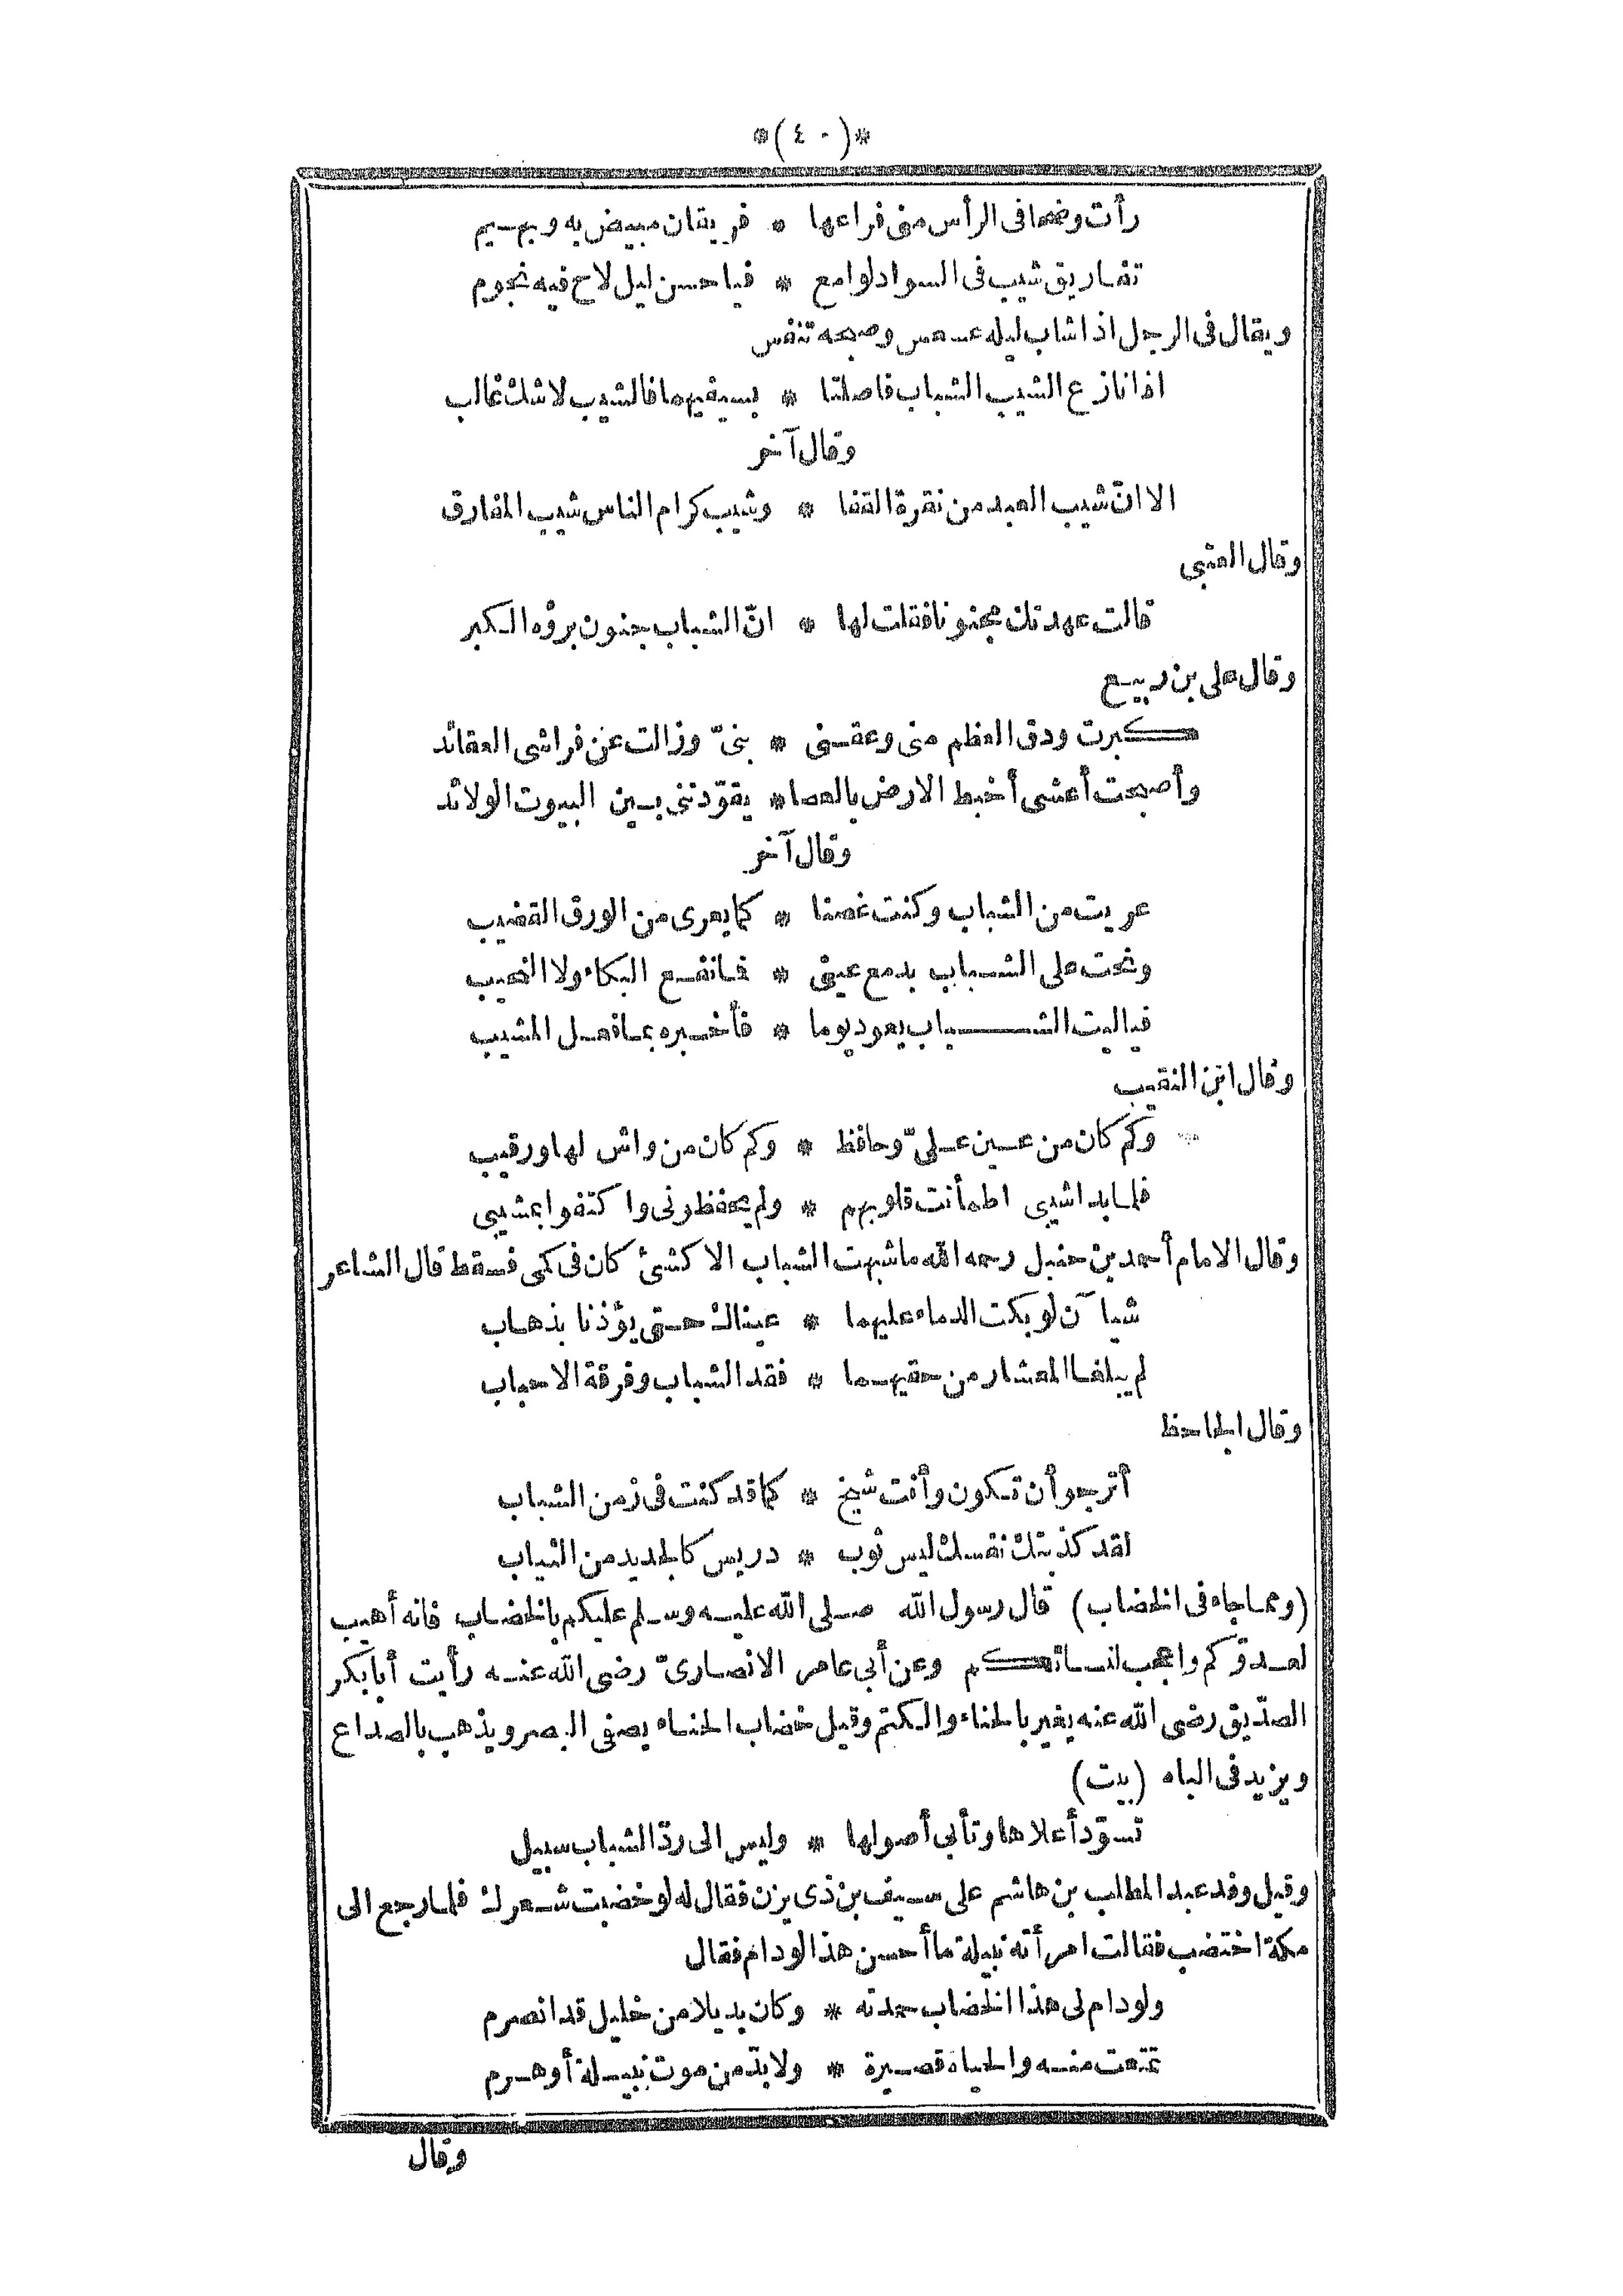 *(٤٠)*
رأت وضحا فى الرأس منى فراعها * فريقان مبيض به وبهيم
تفاريق شيب فى السواد لوامع * فيا حسن ليل لاح فيه نجوم
ويقال فى الرجل اذا شاب ليله عسعس وصبحه تنفس
اذا نازع الشيب الشباب فاصلتا * بسيفيهما فالشيب لاشك غالب
وقال آخر
الا انّ شيب العبد من نقرة القفا * وشيب كرام الناس شيب المفارق
وقال العتبى
قالت عهدتك مجنونا فقلت لها * انّ الشباب جنون برؤه الكبر
وقال على بن ربيع
كبرت ودق العظم منى وعقنى * بنىّ وزالت عن فراشى العقائد
وأصبحت أعشى أخبط الارض بالعصا * يقوّدننى بين البيوت الولائد
وقال آخر
عريت من الشباب وكنت غصنا * كما يعرى من الورق القضيب
ونحت على الشباب بدمع عينى * فما نفع البكاء ولا النحيب
فيا ليت الشباب يعود يوما * فأخبره بما فعل المشيب
وقال ابن النقيب
وكم كان من عين علىّ وحافظ * وكم كان من واش لها ورقيب
فلما بدا شيبى اطمأنت قلوبهم * ولم يحفظونى واكتفوا بمشيبى
وقال الامام أحمد بن حنبل رحمه الله ما شبهت الشباب الا كشئ كان فى كمى فسقط قال الشاعر
شيآن لو بكت الدماء عليهما * عيناك حتى يؤذنا بذهاب
لم يبلغا المعشار من حقيهما * فقد الشباب وفرقة الاحباب
وقال الجاحظ
أترجو أن تكون وأنت شيخ * كما قد كنت فى زمن الشباب
لقد كذبتك نفسك ليس ثوب * دريس كالجديد من الثياب
(ومما جاء فى الخضاب) قال رسول الله صلى الله عليه وسلم عليكم بالخضاب فانه أهيب
لعدوّكم وأعجب لنسائكم وعن أبى عامر الانصارىّ رضى الله عنه رأيت أبا بكر
الصدّيق رضى الله عنه يغير بالحناء والكتم وقيل خضاب الحناء يصفى البصر ويذهب بالصداع
ويزيد فى الباه (بيت)
تسوّد أعلاها وتأبى أصولها * وليس الى ردّ الشباب سبيل
وقيل وفد عبد المطلب بن هاشم على سيف بن ذى يزن فقال له لو خضبت شعرك فلما رجع الى
مكة اختضب فقالت امرأته نبيلة ما أحسن هذا لو دام فقال
ولو دام لى هذا الخضاب حمدته * وكان بديلا من خليل قد انصرم
تمتعت منه والحياة قصيرة * ولا بدّ من موت نبيلة أو هرم
وقال